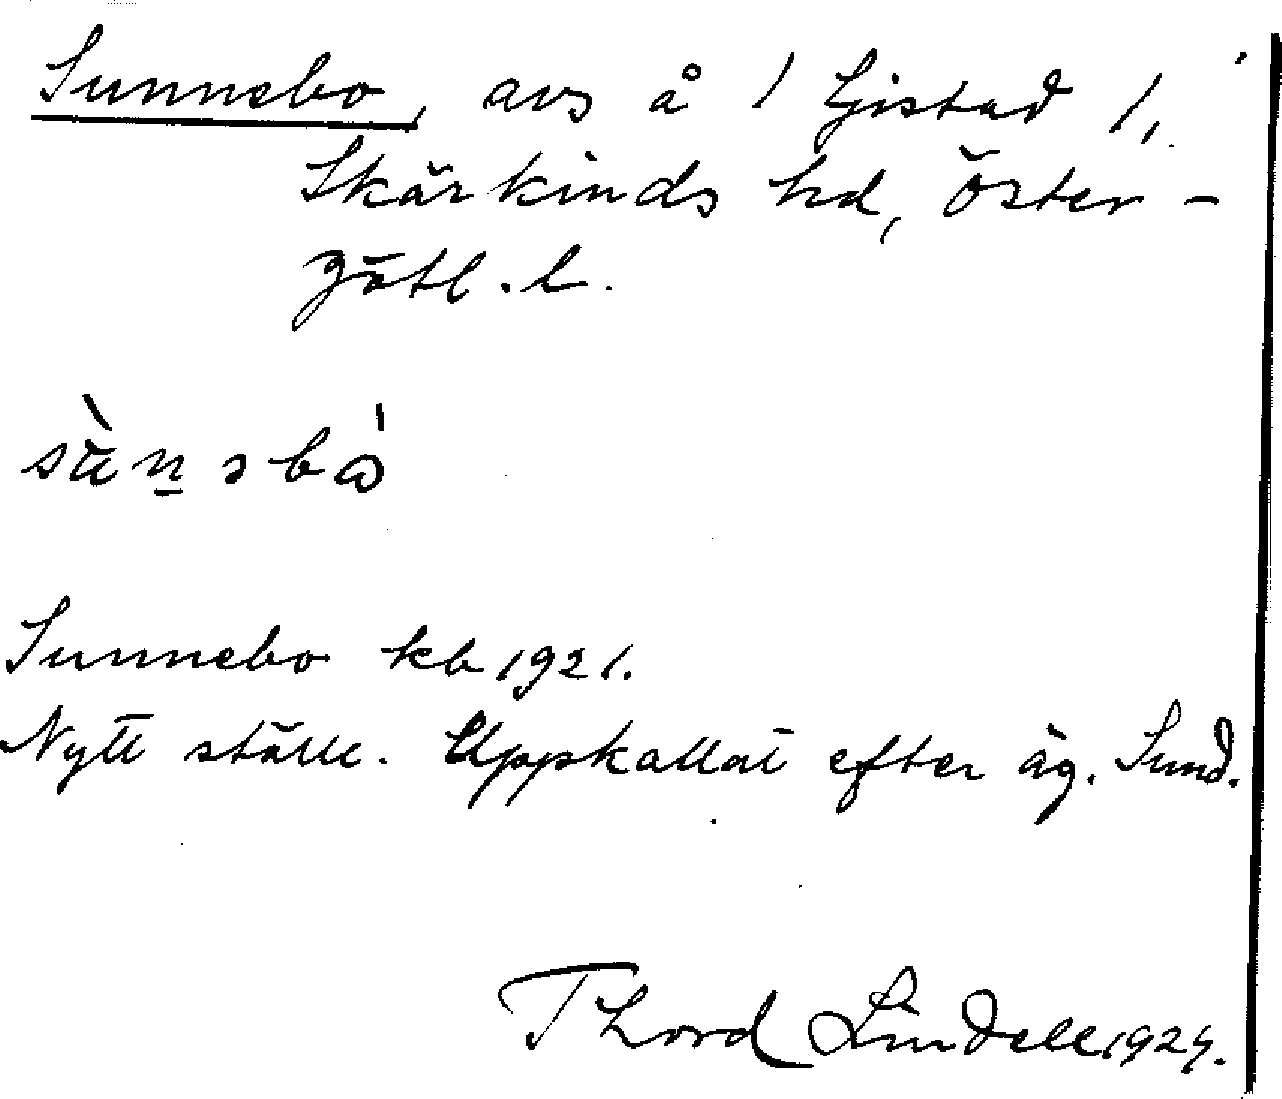 Sunnebo, avs å 1 Gistad 1,
Skärkinds hd, Öster-
götl. l.
Sunnebo kb 1921.
Nytt ställe. Uppkallat efter äg. Sund.
Thord Lindell 1924.